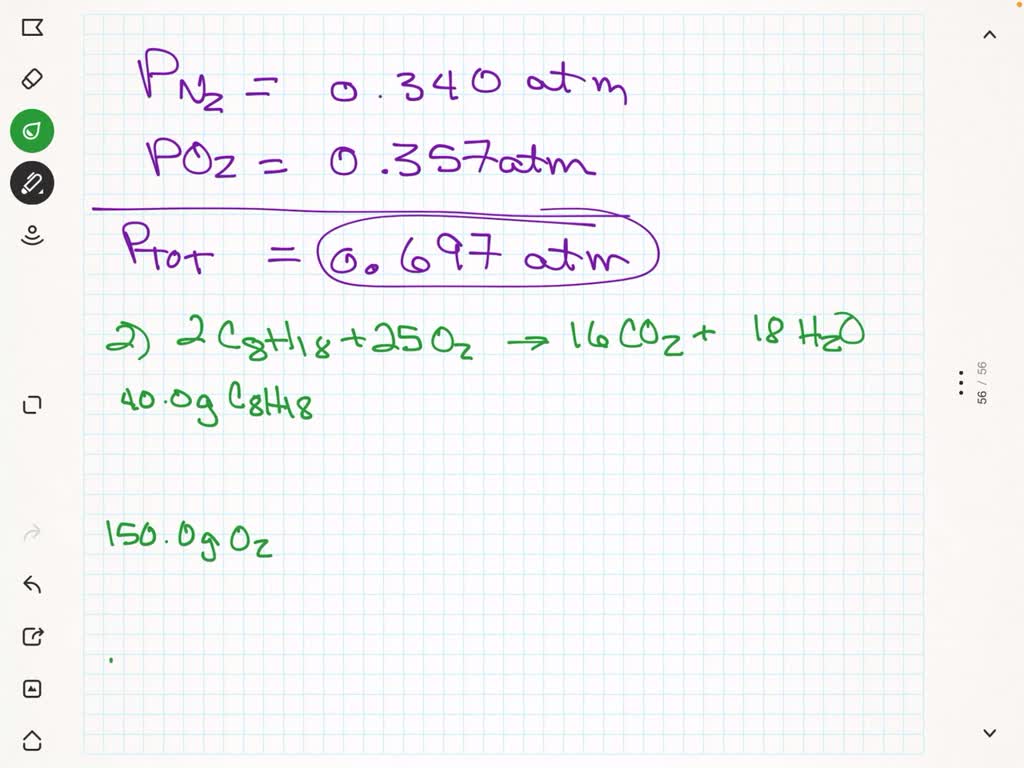 P_N₂ = 0.340 atm
PO₂ = 0.357 atm
P_TOT = 0.697 atm
2) 2 C₈H₁₈ + 25 O₂ → 16 CO₂ + 18 H₂O
40.0g C₈H₁₈
150.0g O₂
56 / 56